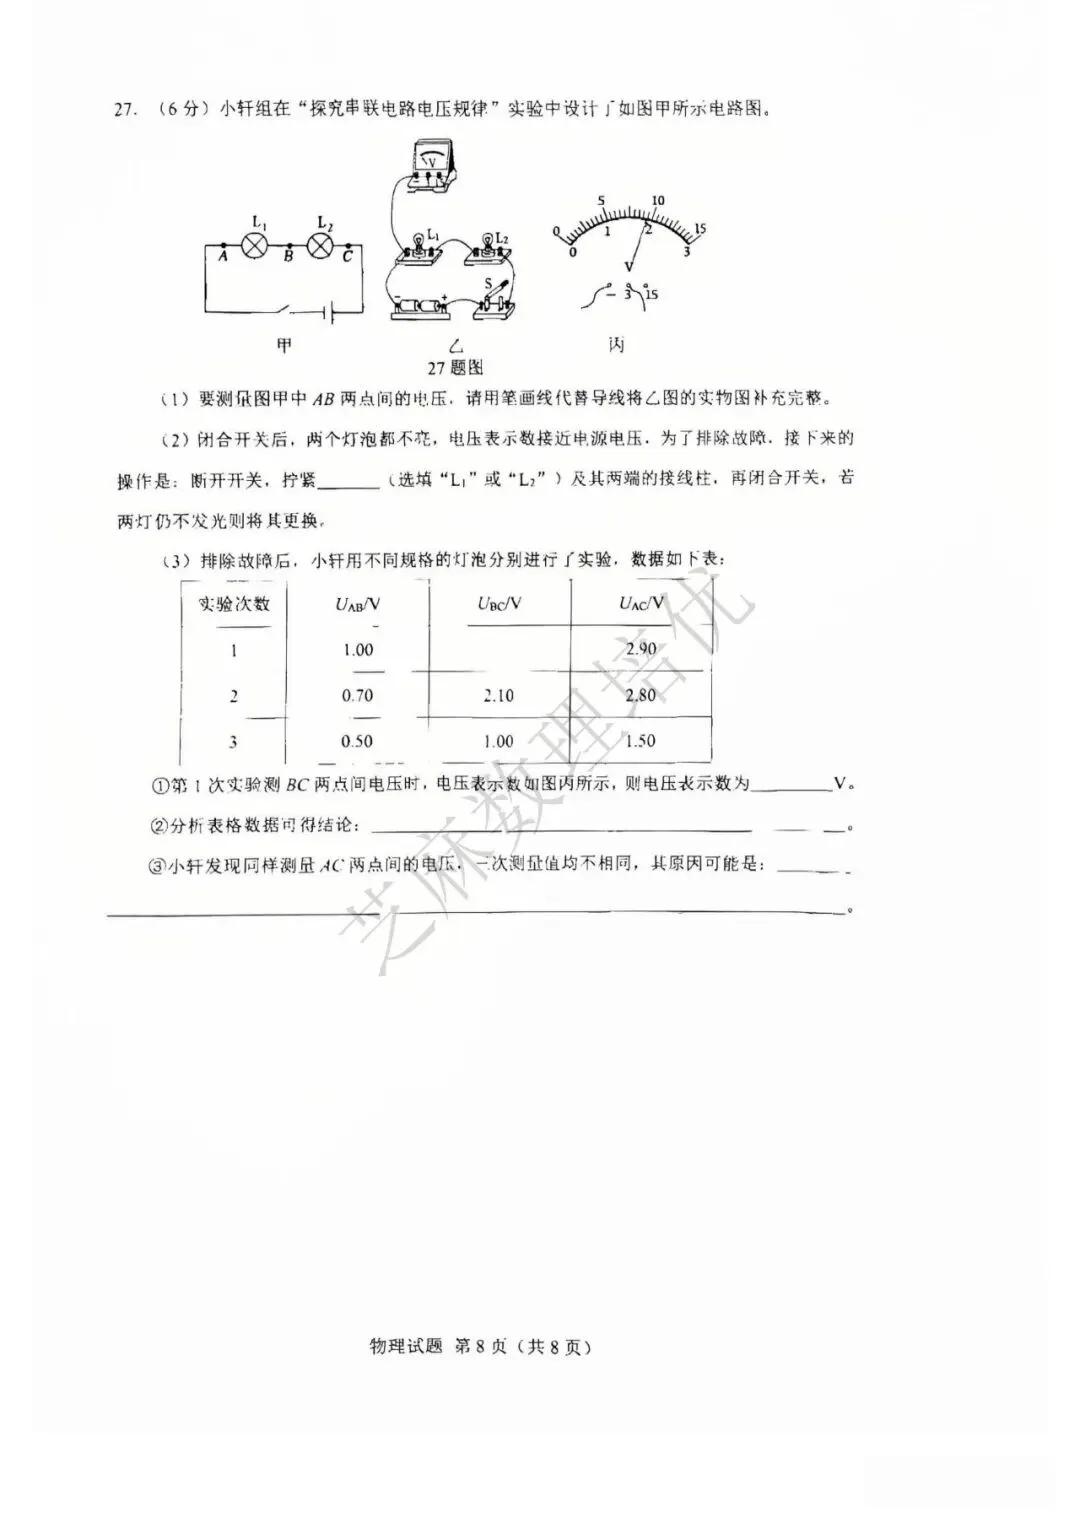 27. （6 分）小轩组在“探究串联电路电压规律”实验中设计了如图甲所示电路图。
V
L₁ L₂
A B C
甲
L₁ L₂
S
- +
乙
0 5 10 15
0 1 2 3
V
- 3 15
丙
27 题图
（1）要测量图甲中 AB 两点间的电压，请用笔画线代替导线将乙图的实物图补充完整。
（2）闭合开关后，两个灯泡都不亮，电压表示数接近电源电压．为了排除故障，接下来的
操作是：断开开关，拧紧______（选填“L₁”或“L₂”）及其两端的接线柱，再闭合开关，若
两灯仍不发光则将其更换。
（3）排除故障后，小轩用不同规格的灯泡分别进行了实验，数据如下表：
实验次数 UAB/V UBC/V UAC/V
1 1.00 2.90
2 0.70 2.10 2.80
3 0.50 1.00 1.50
①第 1 次实验测 BC 两点间电压时，电压表示数如图丙所示，则电压表示数为________V。
②分析表格数据可得结论：________。
③小轩发现同样测量 AC 两点间的电压，三次测量值均不相同，其原因可能是：________
________。
芝麻数理培优
物理试题 第 8 页（共 8 页）